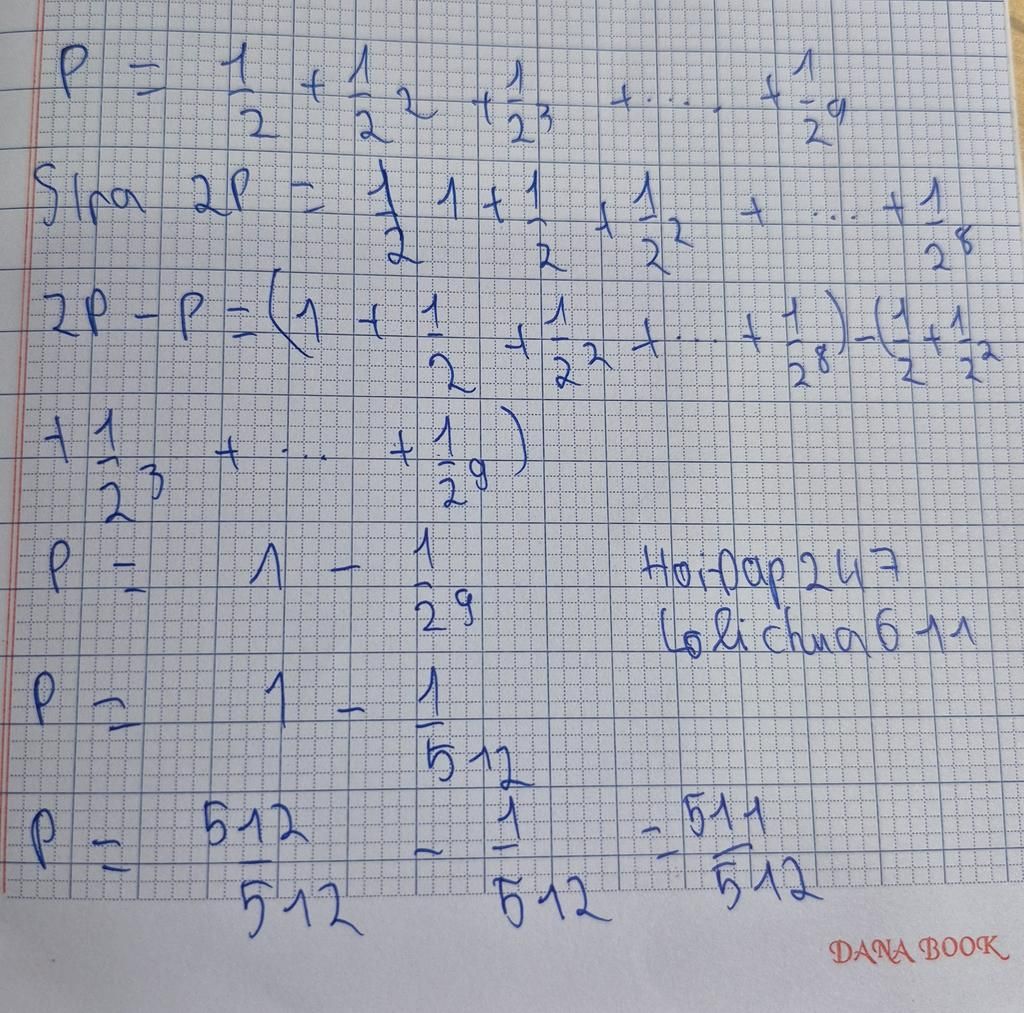 P = 1/2 + 1/2² + 1/2³ + .... + 1/2⁹
2P = 1/2 1 + 1/2 + 1/2² + ... + 1/2⁸
2P - P = (1 + 1/2 + 1/2² + ... + 1/2⁸) - (1/2 + 1/2²
+ 1/2³ + ... + 1/2⁹)
P = 1 - 1/2⁹
HoiDap247
Lolichua611
P = 1 - 1/512
P = 512/512 - 1/512 = 511/512
DANA BOOK